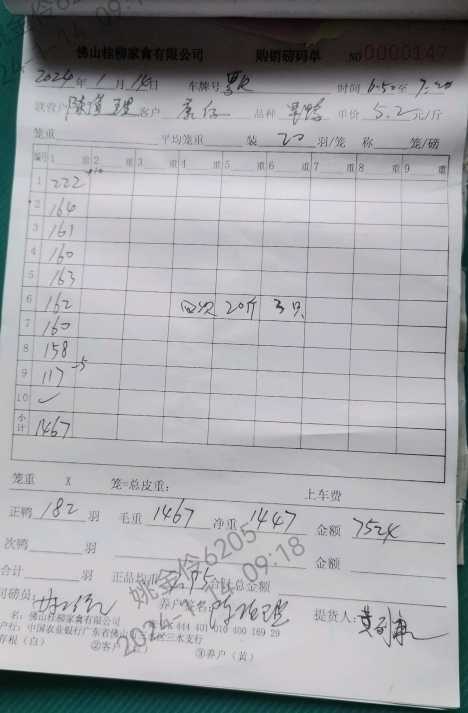 佛山桂柳家禽有限公司 购销磅码单 NO 0000147
2024年1月14日 车牌号 时间 6:50至7:20
客户 品种 单价 5.2 元/斤
笼重 平均笼重 装 20 羽/笼 称 笼/磅
编号 1 重 2 重 3 重 4 重 5 重 6 重 7 重 8 重 9 重
1 222
2 164
3 161
4 160
5 163
6 162 回收 20斤 3只
7 160
8 158
9 117 -5
10 ✓
小计 1467
笼重 X 笼=总皮重: 上车费
正鸭 182 羽 毛重 1467 净重 1447 金额 7524
次鸭 羽 金额
合计 羽 正品均 合计总金额
司磅员: 养户签名: 提货人:
名: 佛山桂柳家禽有限公司 444 401 010 400 169 29
户行: 中国农业银行广东省佛山 三水支行
存根(白) ②客户 ③养户(黄)
姚金伶6205
2024-1-14 09:18